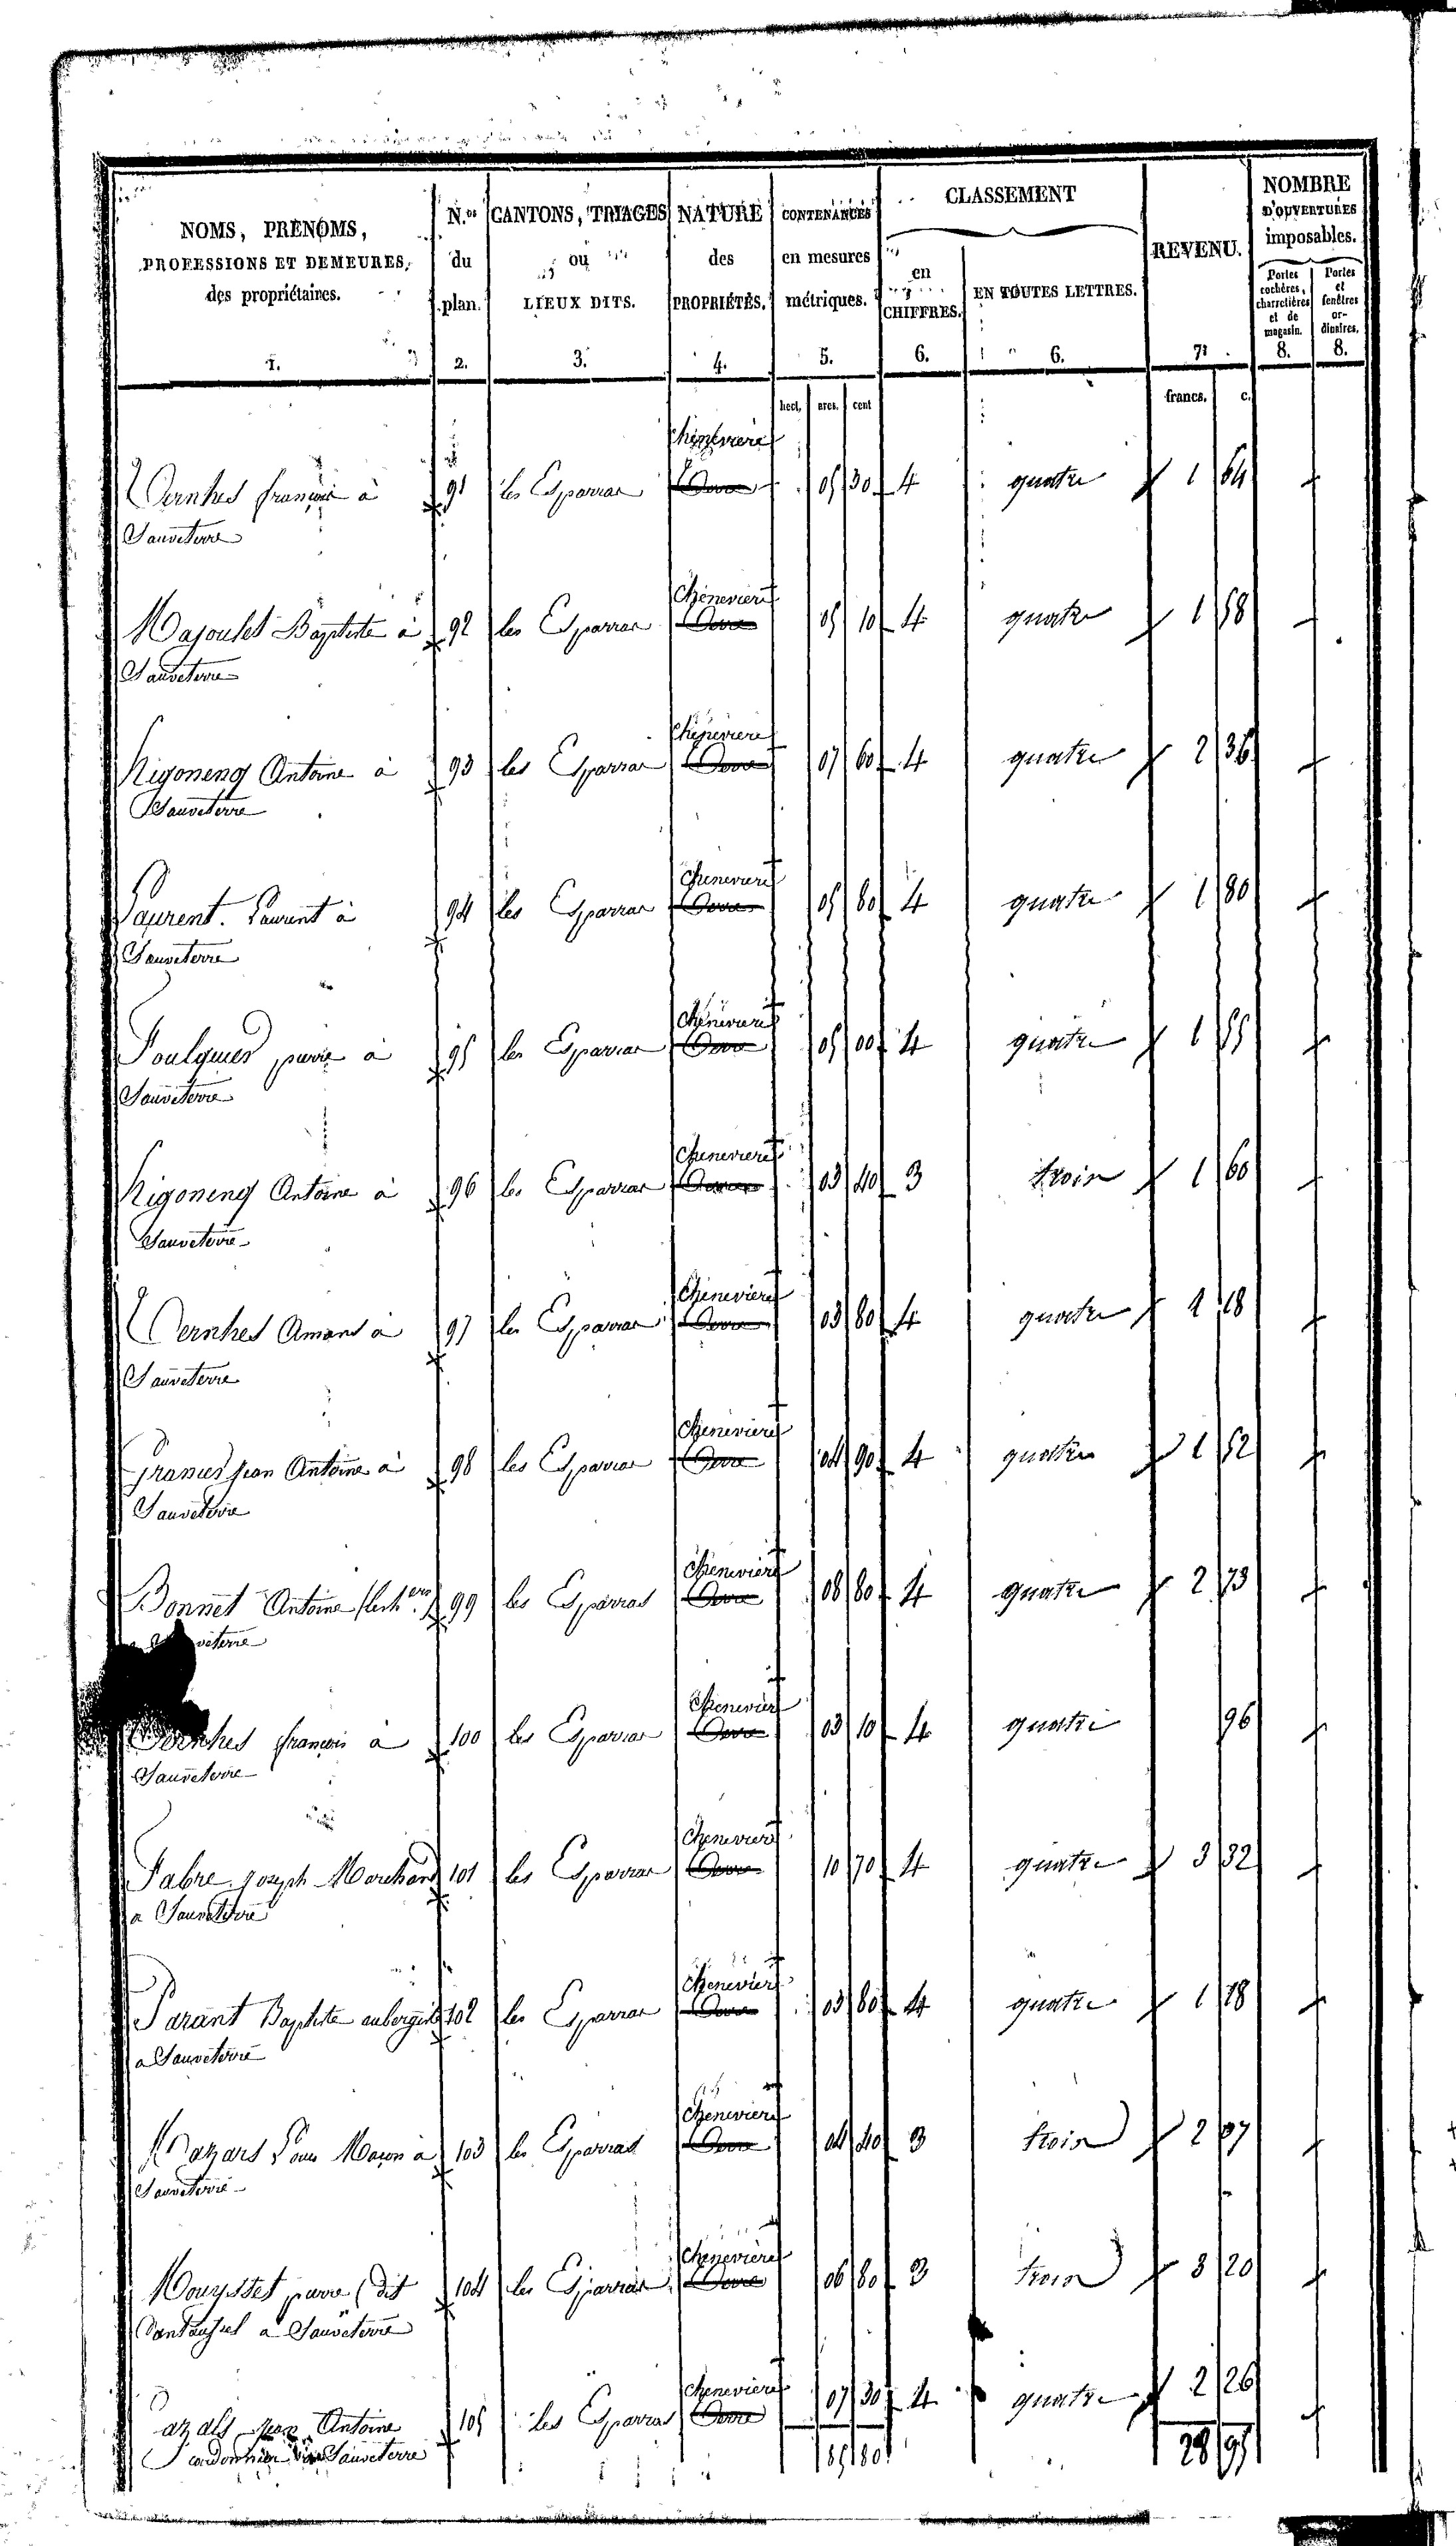 NOMS, PRÉNOMS,
PROFESSIONS ET DEMEURES,
des propriétaires.
1.
N.os
du
plan.
2.
CANTONS, TRIAGES
ou
LIEUX DITS.
3.
NATURE
des
PROPRIÉTÉS.
4.
CONTENANCES
en mesures
métriques.
5.
CLASSEMENT
en
CHIFFRES.
6.
EN TOUTES LETTRES.
6.
REVENU.
7.
NOMBRE
D'OUVERTURES
imposables.
Portes
cochères,
charretières
et de
magasin.
8.
Portes
et
fenêtres
or-
dinaires.
8.
hect. ares. cent
francs. c.
Chenevière
Vernhes françois à 91 les Esparras Terre 05 30 4 quatre 1 64
Sauveterre
Chenevière
Majoulet Baptiste à 92 les Esparras Terre 05 10 4 quatre 1 58
Sauveterre
Chenevière
Rigoneng Antoine à 93 les Esparras Terre 07 60 4 quatre 2 36
Sauveterre
Chenevière
Laurent Laurent à 94 les Esparras Terre 05 80 4 quatre 1 80
Sauveterre
Chenevière
Foulquier pierre à 95 les Esparras Terre 05 00 4 quatre 1 55
Sauveterre
Chenevière
Rigoneng Antoine à 96 les Esparras Terre 03 40 3 trois 1 60
Sauveterre
Chenevière
Vernhes Amans à 97 les Esparras Terre 03 80 4 quatre 1 18
Sauveterre
Chenevière
Granier jean Antoine à 98 les Esparras Terre 04 90 4 quatre 1 52
Sauveterre
Chenevière
Bonnet Antoine (les hers) 99 les Esparras Terre 08 80 4 quatre 2 73
Sauveterre
Chenevière
Vernhes françois à 100 les Esparras Terre 03 10 4 quatre 96
Sauveterre
Chenevière
Fabre joseph Marchand 101 les Esparras Terre 10 70 4 quatre 3 32
a Sauveterre
Chenevière
Parant Baptiste aubergiste 102 les Esparras Terre 03 80 4 quatre 1 18
a Sauveterre
Chenevière
Mazars Louis Maçon à 103 les Esparras Terre 04 40 3 trois 2 07
Sauveterre
Chenevière
Mouysset pierre (dit 104 les Esparras Terre 06 80 3 trois 3 20
a Sauveterre
Chenevière
Cazals jean Antoine 105 les Esparras Terre 07 30 4 quatre 2 26
cordonnier à Sauveterre
85 80 28 95